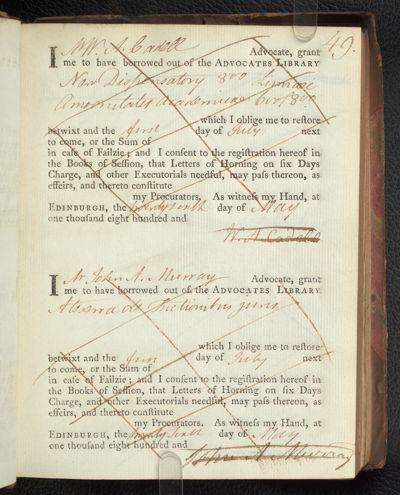 49.
I Mr W. A. Cadell Advocate, grant
me to have borrowed out of the ADVOCATES LIBRARY
New Dispensatory 8vo Linnaei
Amoenitates academicae 6 vol 8vo
which I oblige me to reſtore
betwixt and the firſt day of July next
to come, or the Sum of
in caſe of Failzie; and I conſent to the regiſtration hereof in
the Books of Seſſion, that Letters of Horning on ſix Days
Charge, and other Executorials needful, may paſs thereon, as
effeirs, and thereto conſtitute
my Procurators. As witneſs my Hand, at
EDINBURGH, the twenty sixth day of May
one thouſand eight hundred and
W. A. Cadell
I Mr John A. Murray Advocate, grant
me to have borrowed out of the ADVOCATES LIBRARY
de fictionibus juris
which I oblige me to reſtore
betwixt and the first day of July next
to come, or the Sum of
in caſe of Failzie; and I conſent to the regiſtration hereof in
the Books of Seſſion, that Letters of Horning on ſix Days
Charge, and other Executorials needful, may paſs thereon, as
effeirs, and thereto conſtitute
my Procurators. As witneſs my Hand, at
EDINBURGH, the twenty sixth day of May
one thouſand eight hundred and
John A. Murray